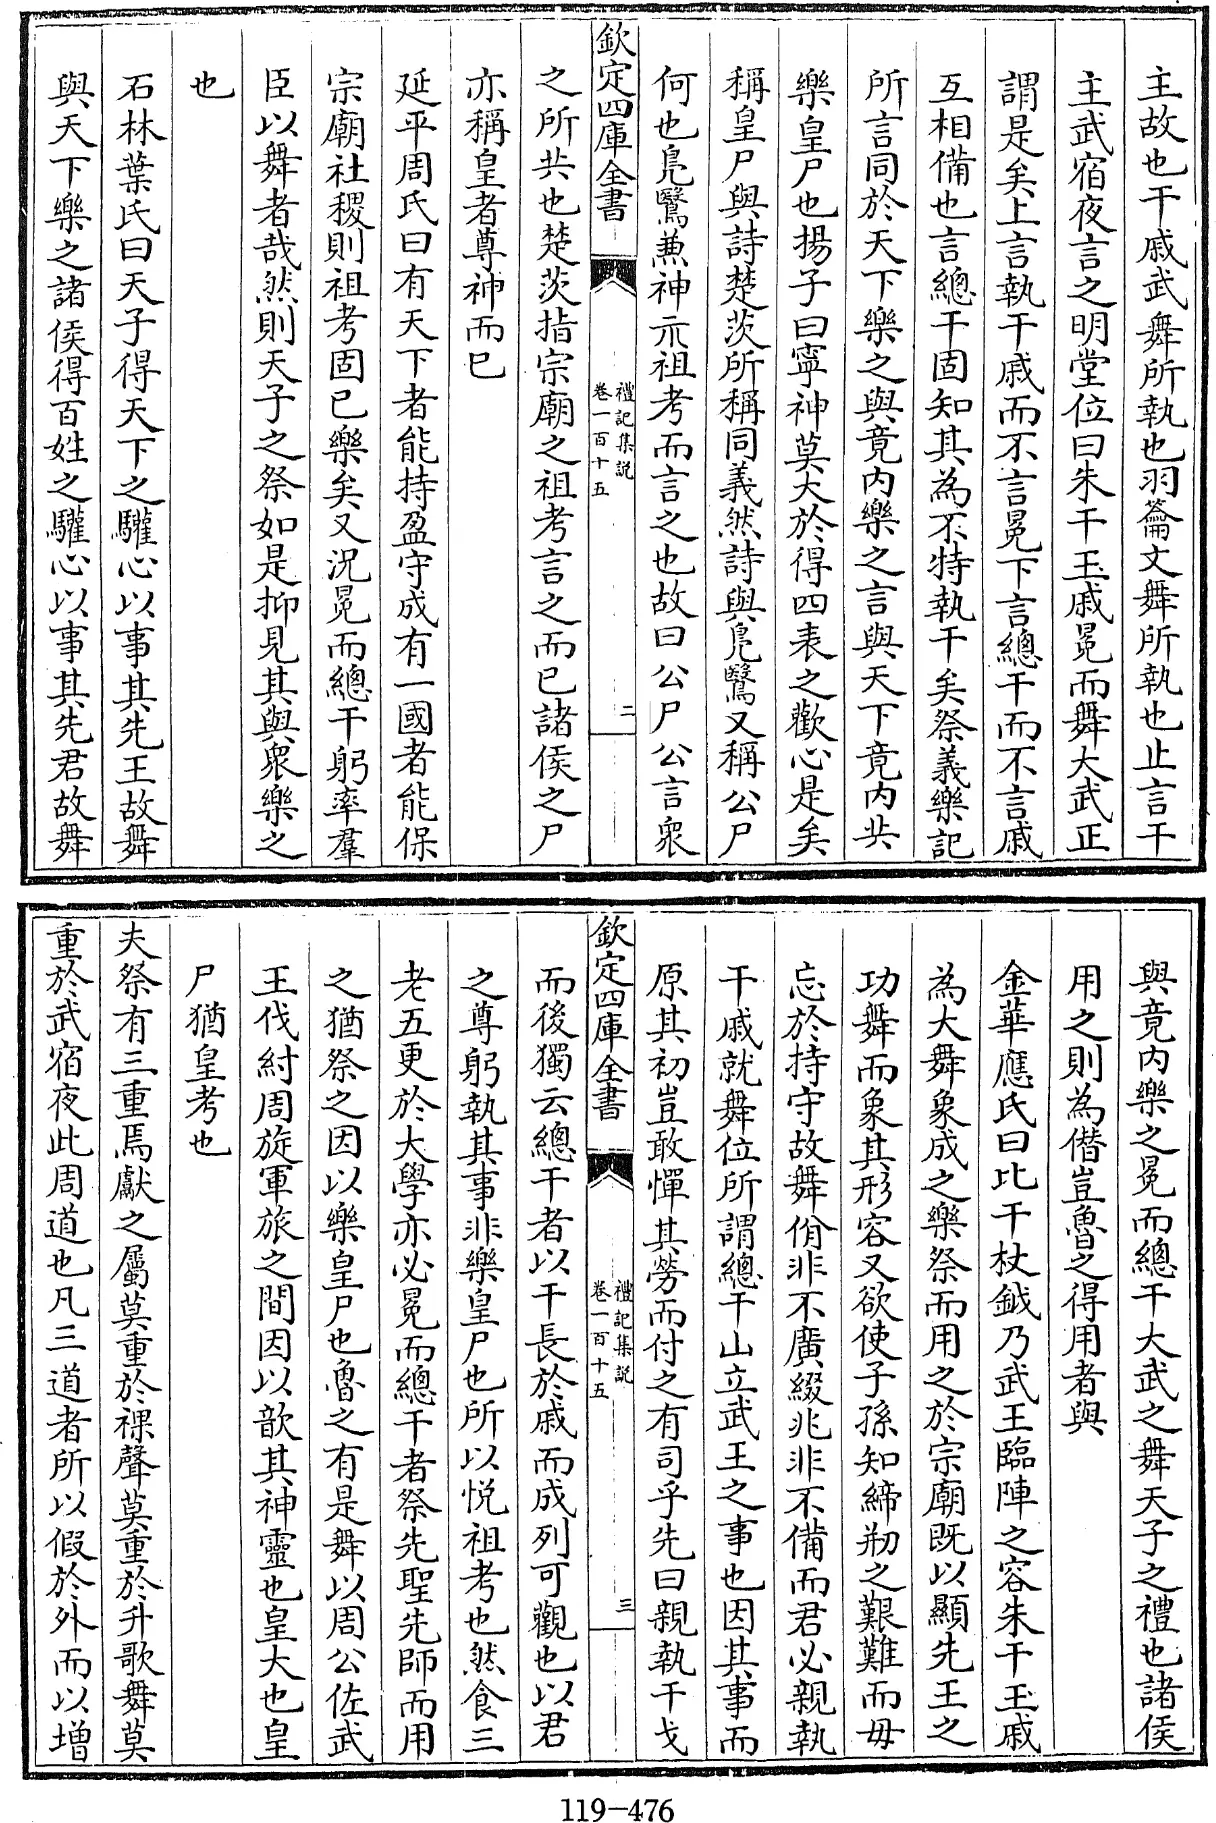 主故也干戚武舞所執也羽籥文舞所執也止言干
主武宿夜言之明堂位曰朱干玉戚冕而舞大武正
謂是矣上言執干戚而不言冕下言總干而不言戚
互相備也言總干固知其為不特執干矣祭義樂記
所言同於天下樂之與竟內樂之言與天下竟內共
樂皇尸也揚子曰寧神莫大於得四表之歡心是矣
稱皇尸與詩楚茨所稱同義然詩與鳧鷖又稱公尸
何也鳧鷖兼神示祖考而言之也故曰公尸公言衆
欽定四庫全書
禮記集説
卷一百十五
二
之所共也楚茨指宗廟之祖考言之而已諸侯之尸
亦稱皇者尊神而已
延平周氏曰有天下者能持盈守成有一國者能保
宗廟社稷則祖考固已樂矣又況冕而總干躬率羣
臣以舞者哉然則天子之祭如是抑見其與衆樂之
也
石林葉氏曰天子得天下之驩心以事其先王故舞
與天下樂之諸侯得百姓之驩心以事其先君故舞
與竟內樂之冕而總干大武之舞天子之禮也諸侯
用之則為僭豈魯之得用者與
金華應氏曰比干杖鉞乃武王臨陣之容朱干玉戚
為大舞象成之樂祭而用之於宗廟既以顯先王之
功舞而象其形容又欲使子孫知締刱之艱難而毋
忘於持守故舞佾非不廣綴兆非不備而君必親執
干戚就舞位所謂總干山立武王之事也因其事而
原其初豈敢憚其勞而付之有司乎先曰親執干戈
欽定四庫全書
禮記集説
卷一百十五
三
而後獨云總干者以干長於戚而成列可觀也以君
之尊躬執其事非樂皇尸也所以悅祖考也然食三
老五更於大學亦必冕而總干者祭先聖先師而用
之猶祭之因以樂皇尸也魯之有是舞以周公佐武
王伐紂周旋軍旅之間因以歆其神靈也皇大也皇
尸猶皇考也
夫祭有三重焉獻之屬莫重於祼聲莫重於升歌舞莫
重於武宿夜此周道也凡三道者所以假於外而以增
119-476